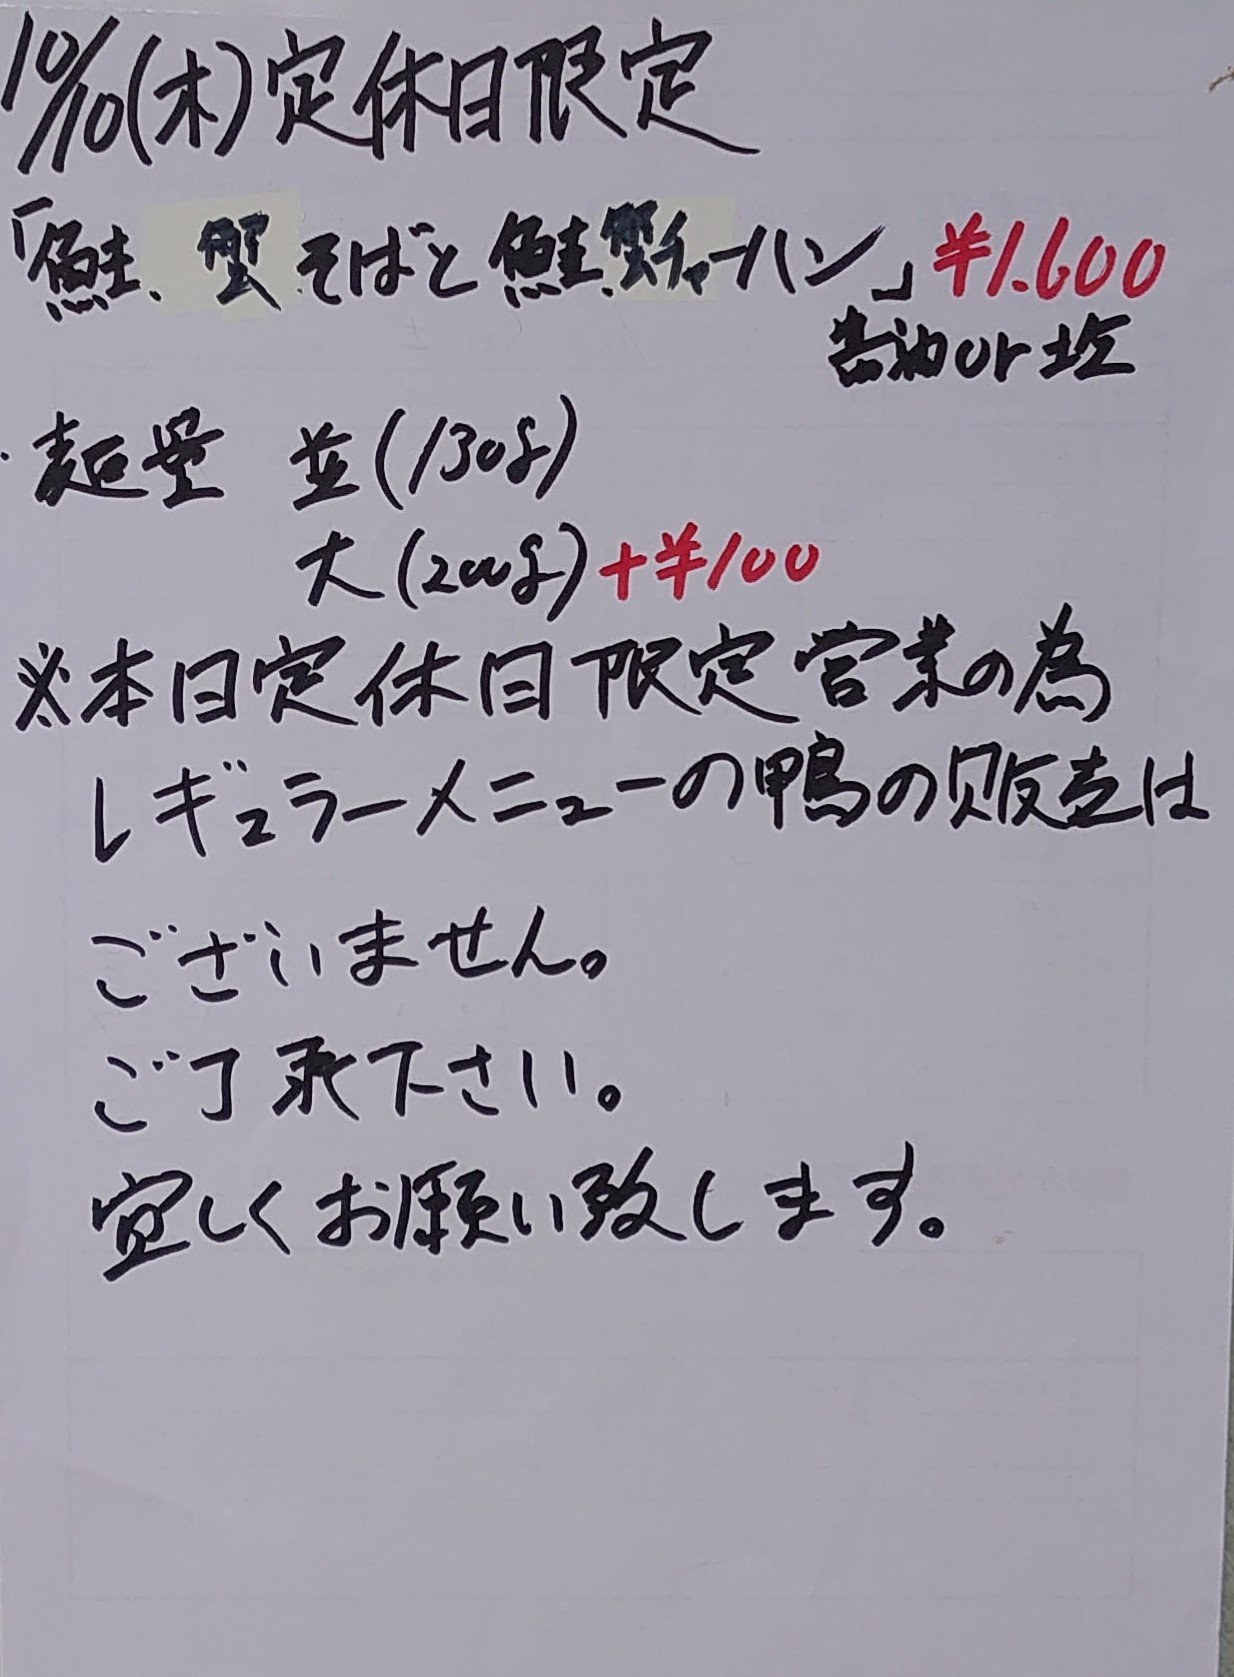 10/10(木)定休日限定
「鮭、蟹そばと鮭、蟹チャーハン」¥1.600
醤油or塩
・麺量 並(130g)
大(200g)+¥100
※本日定休日限定営業の為
レギュラーメニューの鴨の販売は
ございません。
ご了承下さい。
宜しくお願い致します。